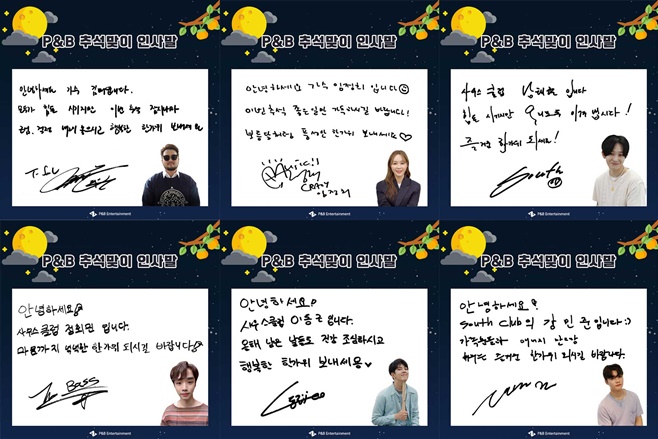 P&B 추석맞이 인사말
안녕하세요 가수 입니다.
모두가 힘든 시기지만 이번 추석
행복한 한가위 보내세요
T.
P&B Entertainment
P&B 추석맞이 인사말
안녕하세요 가수 임정희 입니다
이번 추석 좋은일만 가득하시길 바랍니다!
보름달처럼 풍성한 한가위 보내세요♡
CRAZY
임정희
P&B Entertainment
P&B 추석맞이 인사말
사우스클럽 남태현 입니다
힘든 시기지만 이겨냅시다!
즐거운 한가위 되세요!
South
P&B Entertainment
P&B 추석맞이 인사말
안녕하세요
사우스클럽 정회민 입니다.
마음까지 넉넉한 한가위 되시길 바랍니다
Bass
P&B Entertainment
P&B 추석맞이 인사말
안녕하세요
사우스클럽 이동근 입니다.
올해 남은 날들도 건강 조심하시고
행복한 한가위 보내세용♡
P&B Entertainment
P&B 추석맞이 인사말
안녕하세요?
South Club의 강민준입니다:)
가족분들과
한가위 되시길 바랍니다.
P&B Entertainment